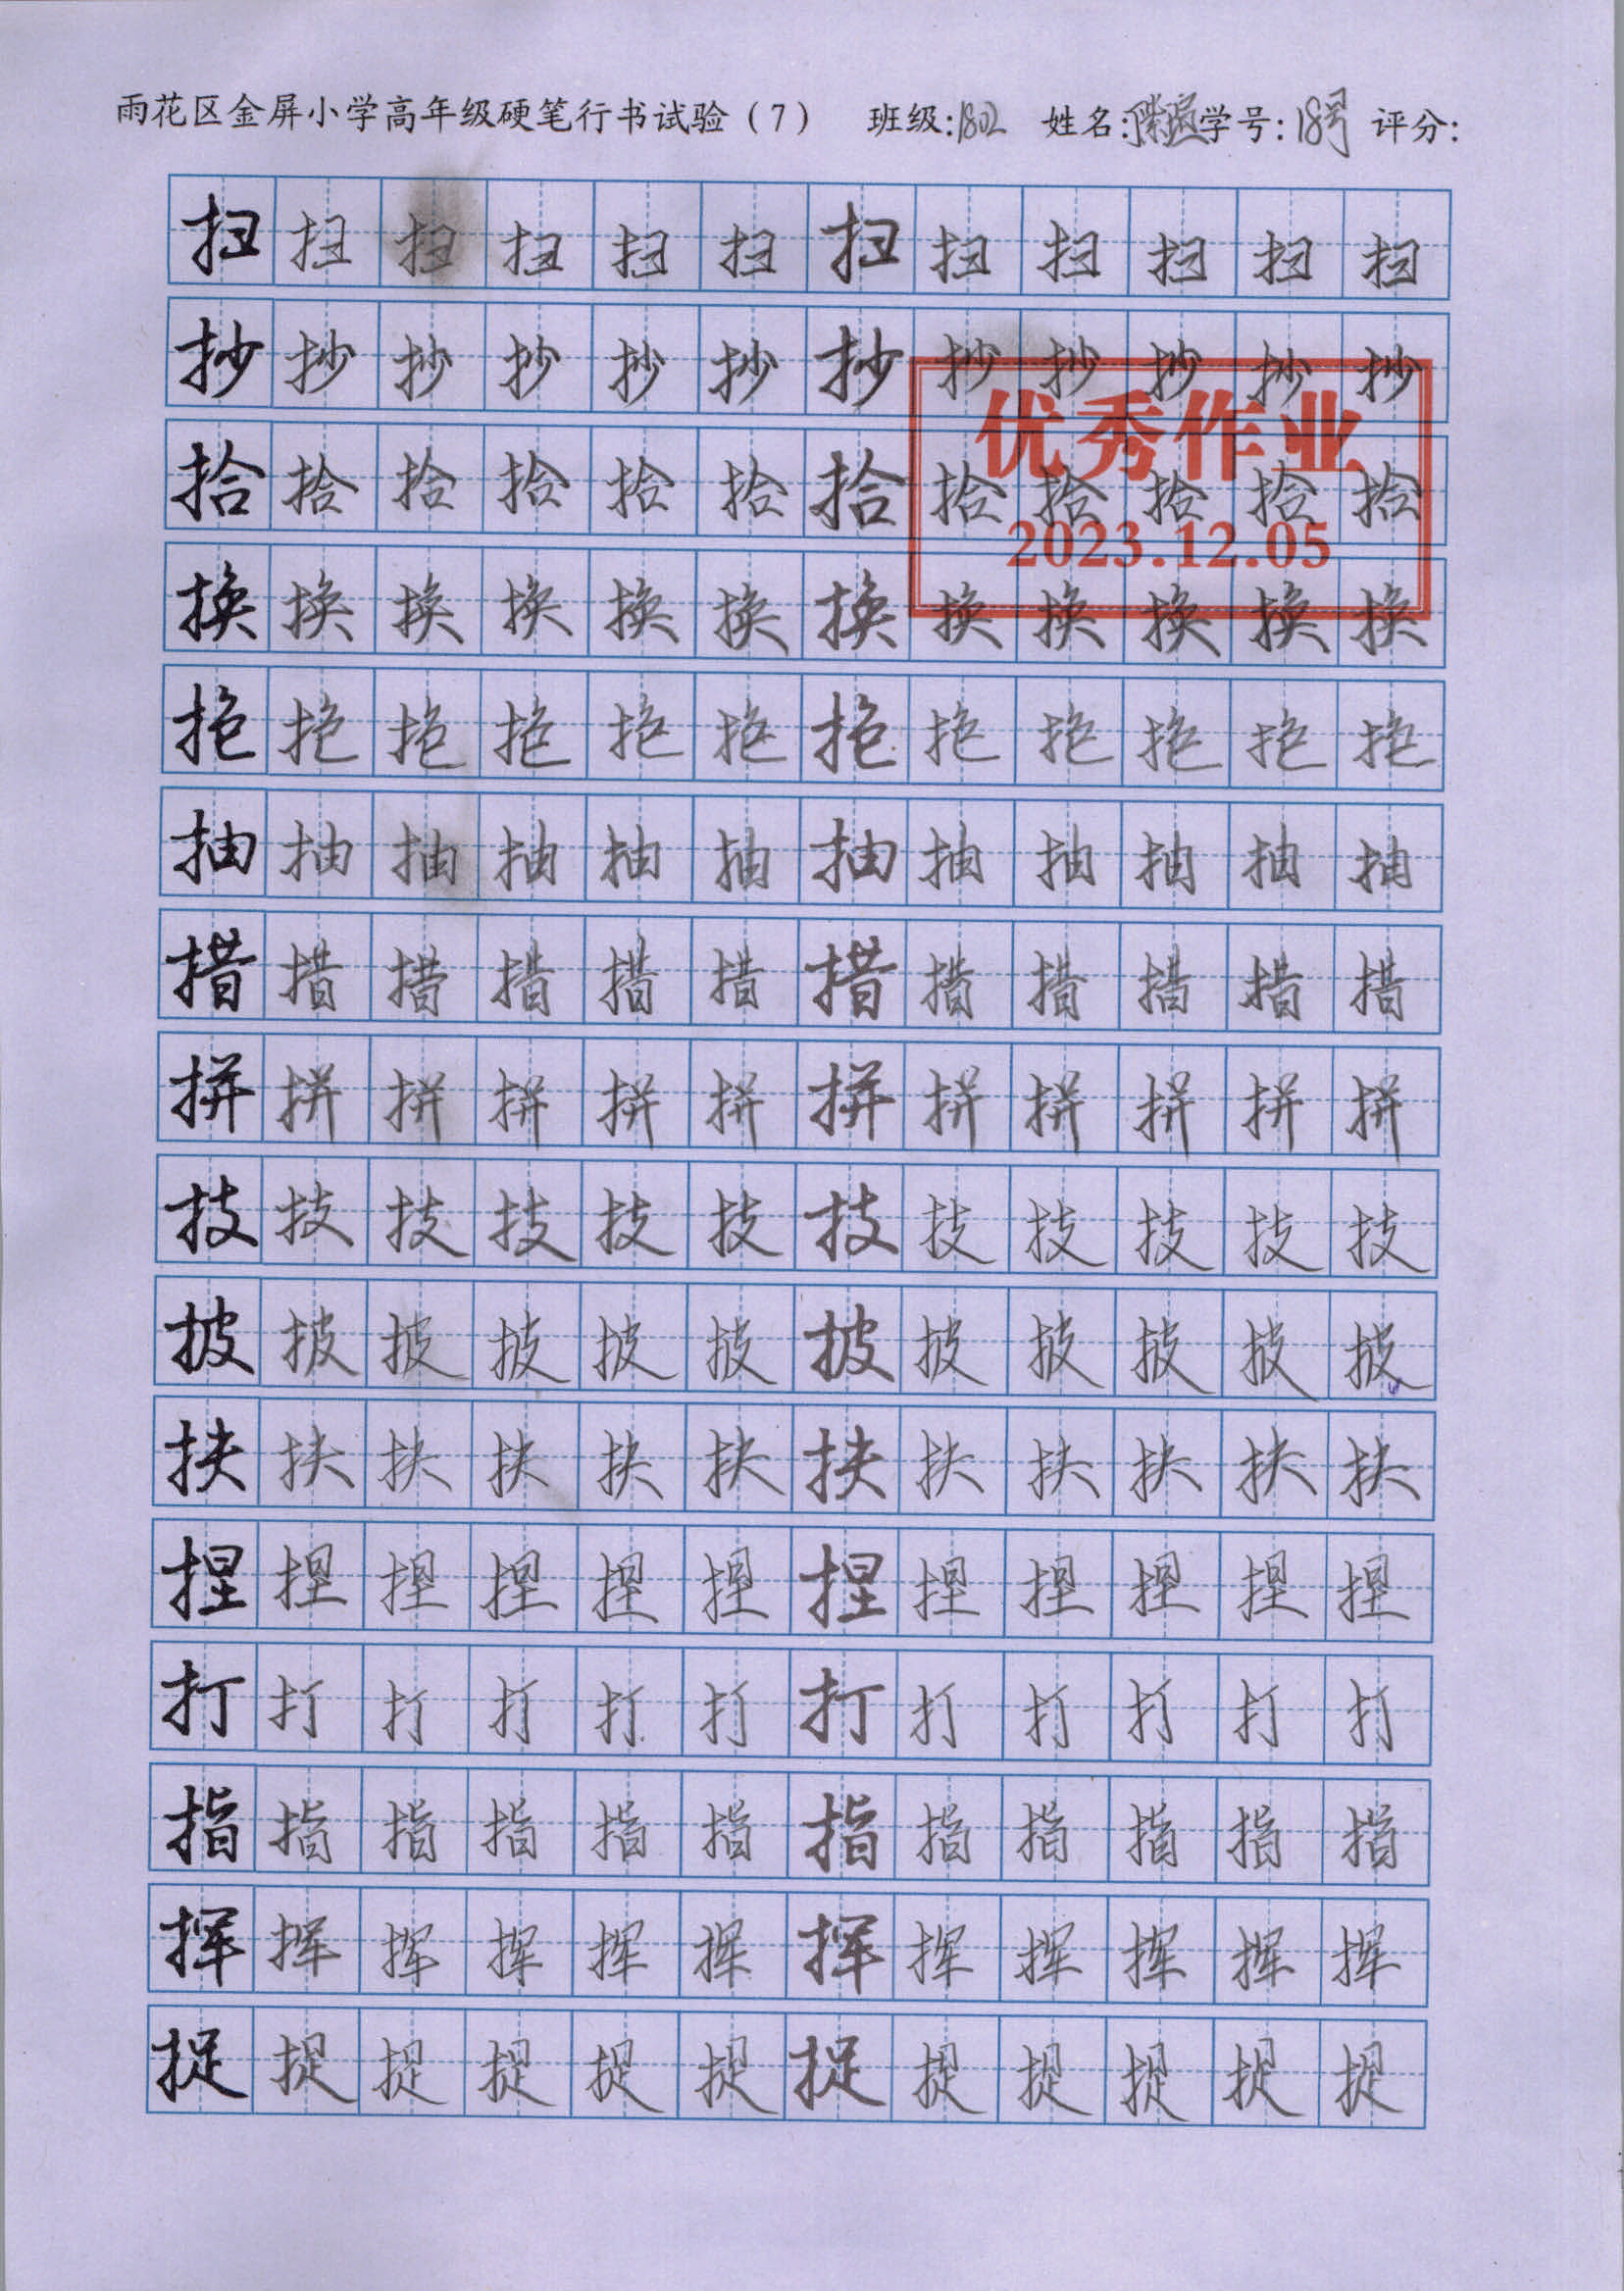 雨花区金屏小学高年级硬笔行书试验（7） 班级:1802 姓名: 学号: 18号 评分:
扫扫扫扫扫扫扫扫扫扫扫扫
抄抄抄抄抄抄抄抄抄抄抄抄
优秀作业
拾拾拾拾拾拾拾拾拾拾拾拾
2023.12.05
换换换换换换换换换换换换
抱抱抱抱抱抱抱抱抱抱抱抱
抽抽抽抽抽抽抽抽抽抽抽抽
措措措措措措措措措措措措
拼拼拼拼拼拼拼拼拼拼拼拼
技技技技技技技技技技技技
披披披披披披披披披披披披
扶扶扶扶扶扶扶扶扶扶扶扶
捏捏捏捏捏捏捏捏捏捏捏捏
打打打打打打打打打打打打
指指指指指指指指指指指指
挥挥挥挥挥挥挥挥挥挥挥挥
捉捉捉捉捉捉捉捉捉捉捉捉